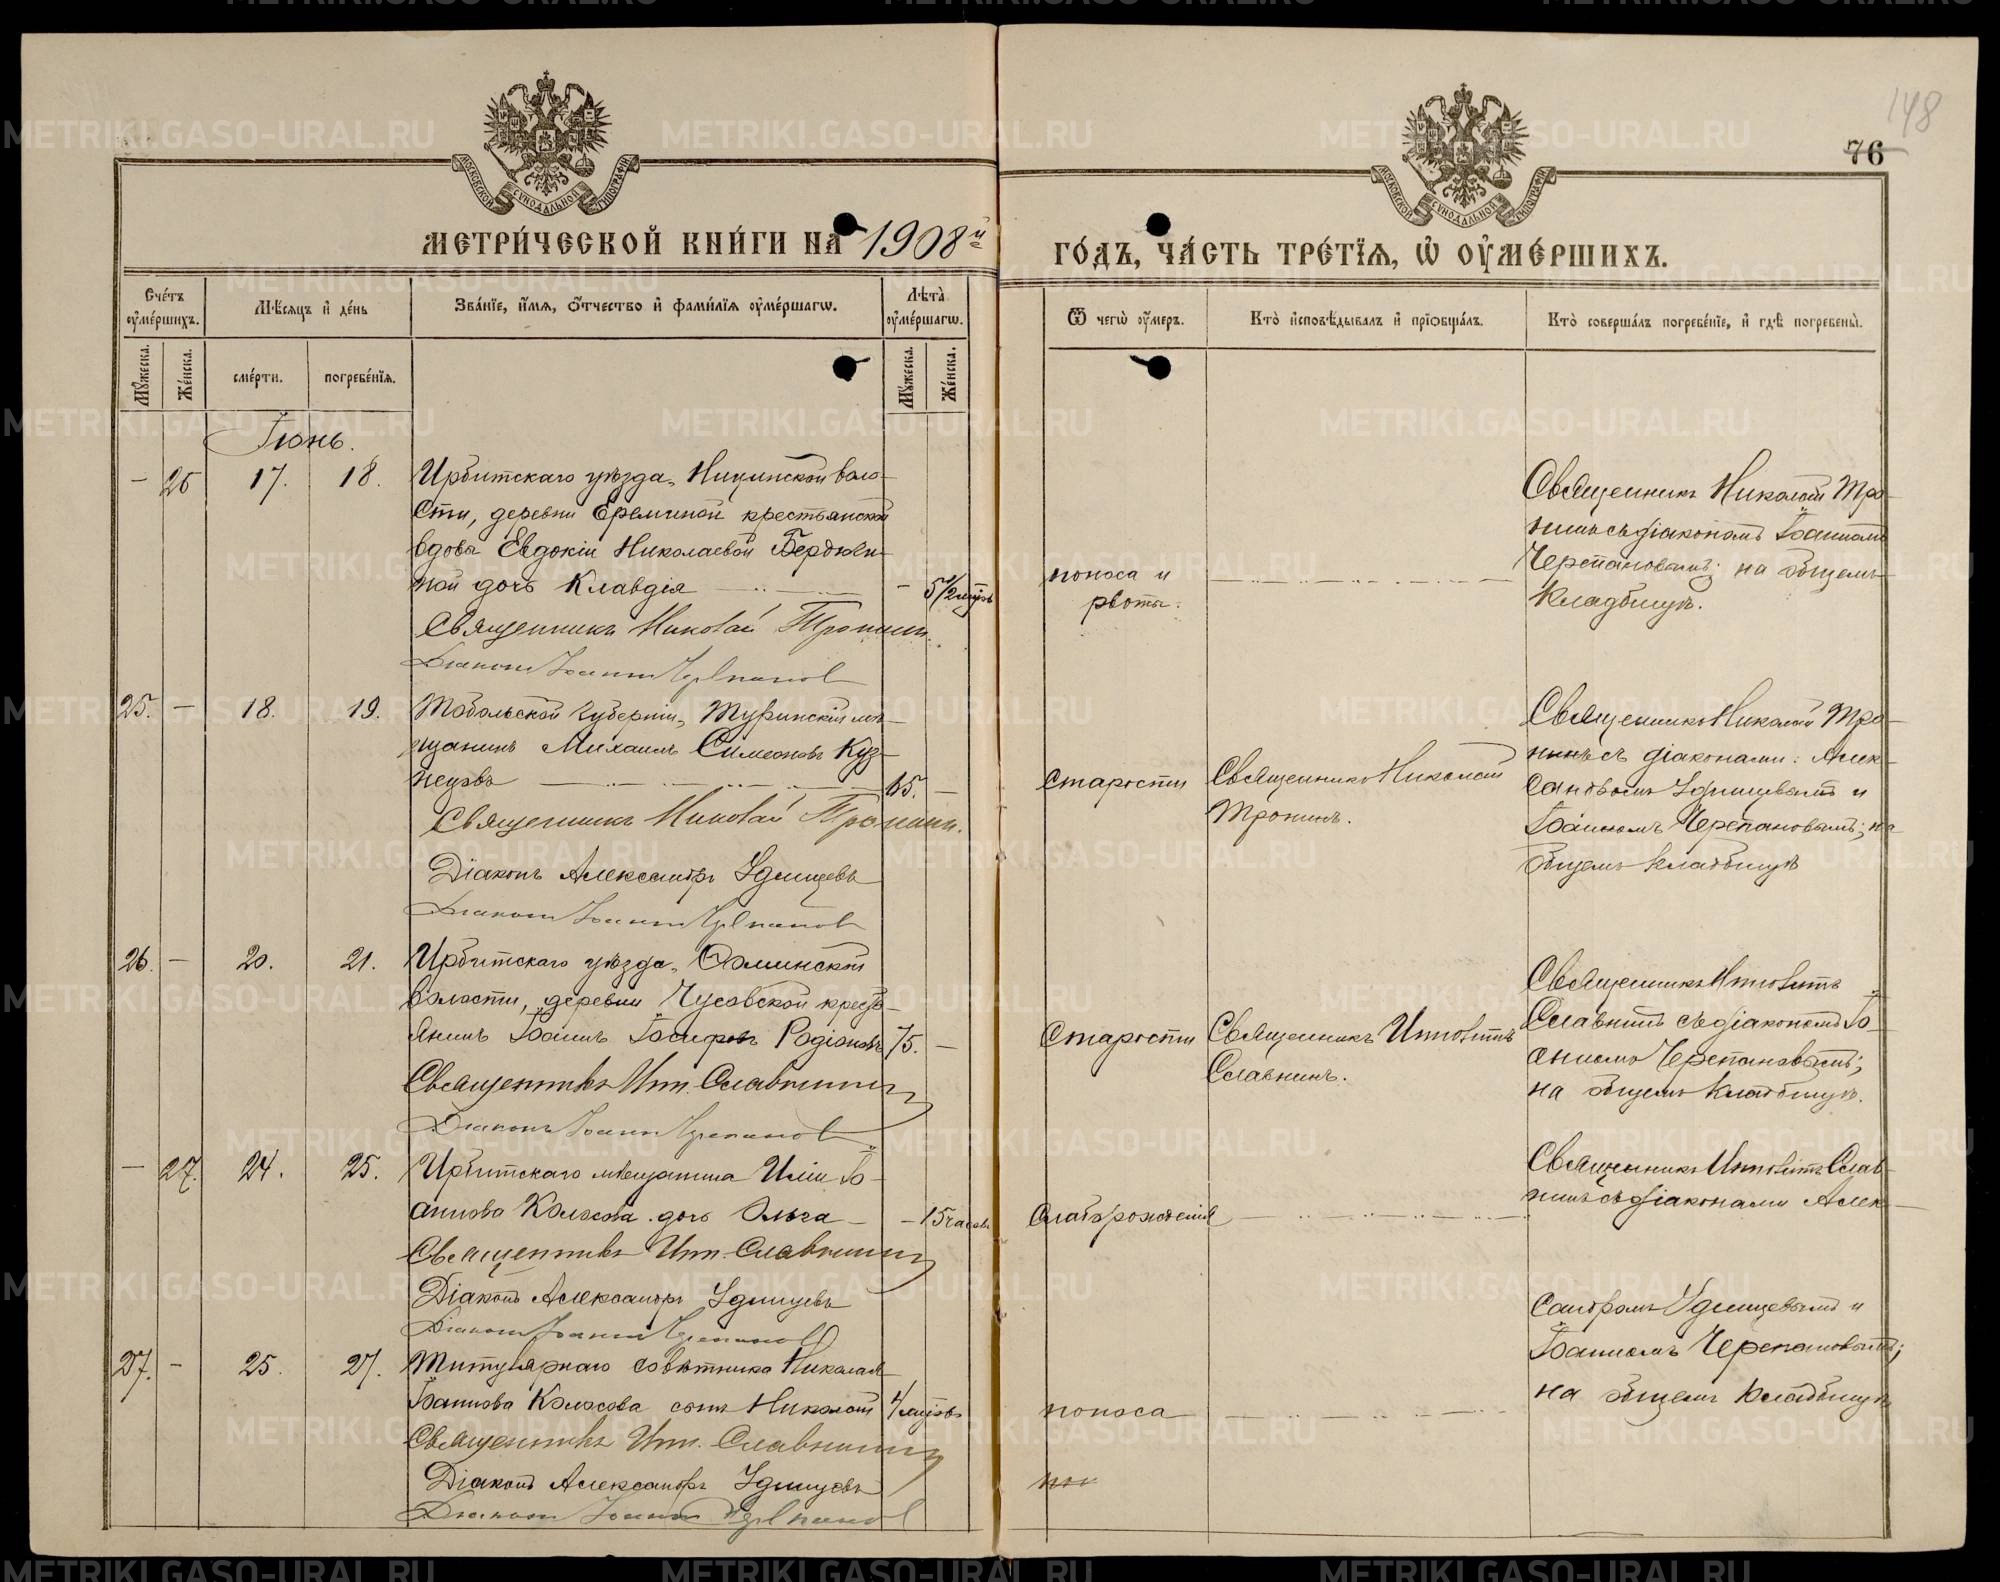 148
76
МОСКОВСКОЙ СѴНОДАЛЬНОЙ ТИПОГРАФІИ
МОСКОВСКОЙ СѴНОДАЛЬНОЙ ТИПОГРАФІИ
МЕТРИ́ЧЕСКОЙ КНИ́ГИ НА 1908й
ГО́ДЪ, ЧА́СТЬ ТРЕ́ТІѦ, Ѡ҆ ОУ҆МЕ́РШИХЪ.
Сче́тъ оу҆ме́ршихъ.
Мѣ́сяцъ и҆ де́нь
Зва́нїе, и҆́мѧ, ѻ҆́тчество и҆ фами́лїѧ оу҆ме́ршагѡ.
Лѣ́та оу҆ме́ршагѡ.
Ѿ чегѡ̀ оу҆́меръ.
Кто̀ и҆сповѣ́дывалъ и҆ прїѡбща́лъ.
Кто̀ соверша́лъ погребе́нїе, и҆ гдѣ̀ погребены̀.
Мꙋ́жеска.
Же́нска.
сме́рти.
погребе́нїѧ.
Мꙋ́жеска.
Же́нска.
Іюнь.
- 26 17. 18. Ирбитскаго уѣзда, Ницинской воло-
сти, деревни Ереминой крестьянской
вдовы Евдокіи Николаевой Бердюги-
ной дочь Клавдія - 5½ мцсвъ
Священникъ Николай Тронинъ.
Діаконъ Іоаннъ Черепановъ
поноса и
рвоты.
Священникъ Николай Тро-
нинъ съ діакономъ Іоанномъ
Черепановымъ; на общемъ
кладбищѣ.
25. - 18. 19. Тобольской губерніи, Туринскій мѣ-
щанинъ Михаилъ Симеоновъ Куз-
нецовъ 65. -
Священникъ Николай Тронинъ.
Діаконъ Александръ Удинцевъ
Діаконъ Іоаннъ Черепановъ
Старости
Священникъ Николай
Тронинъ.
Священникъ Николай Тро-
нинъ съ діаконами: Алек-
сандромъ Удинцевымъ и
Іоанномъ Черепановымъ; на
общемъ кладбищѣ
26. - 20. 21. Ирбитскаго уѣзда,
волости, деревни Чусовской кресть-
янинъ Іоаннъ Іосифовъ Родіоновъ 75. -
Священникъ Инн. Славнинъ
Діаконъ Іоаннъ Черепановъ
Старости
Священникъ Иннокентій
Славнинъ.
Священникъ Иннокентій
Славнинъ съ діакономъ Іо-
анномъ Черепановымъ;
на общемъ кладбищѣ.
- 27. 24. 25. Ирбитскаго мѣщанина Иліи Іо-
аннова Колосова дочь Ольга - 15 часовъ
Священникъ Инн. Славнинъ
Діаконъ Александръ Удинцевъ
Діаконъ Іоаннъ Черепановъ
Слаборожденія
Священникъ Иннокентій Слав-
нинъ съ діаконами Алек-
сандромъ Удинцевымъ и
Іоанномъ Черепановымъ;
на общемъ кладбищѣ
27. - 25. 27. Титулярнаго совѣтника Николая
Іоаннова Колосова сынъ Николай 4 мцсвъ
Священникъ Инн. Славнинъ
Діаконъ Александръ Удинцевъ
Діаконъ Іоаннъ Черепановъ
поноса
пон
METRIKI.GASO-URAL.RU